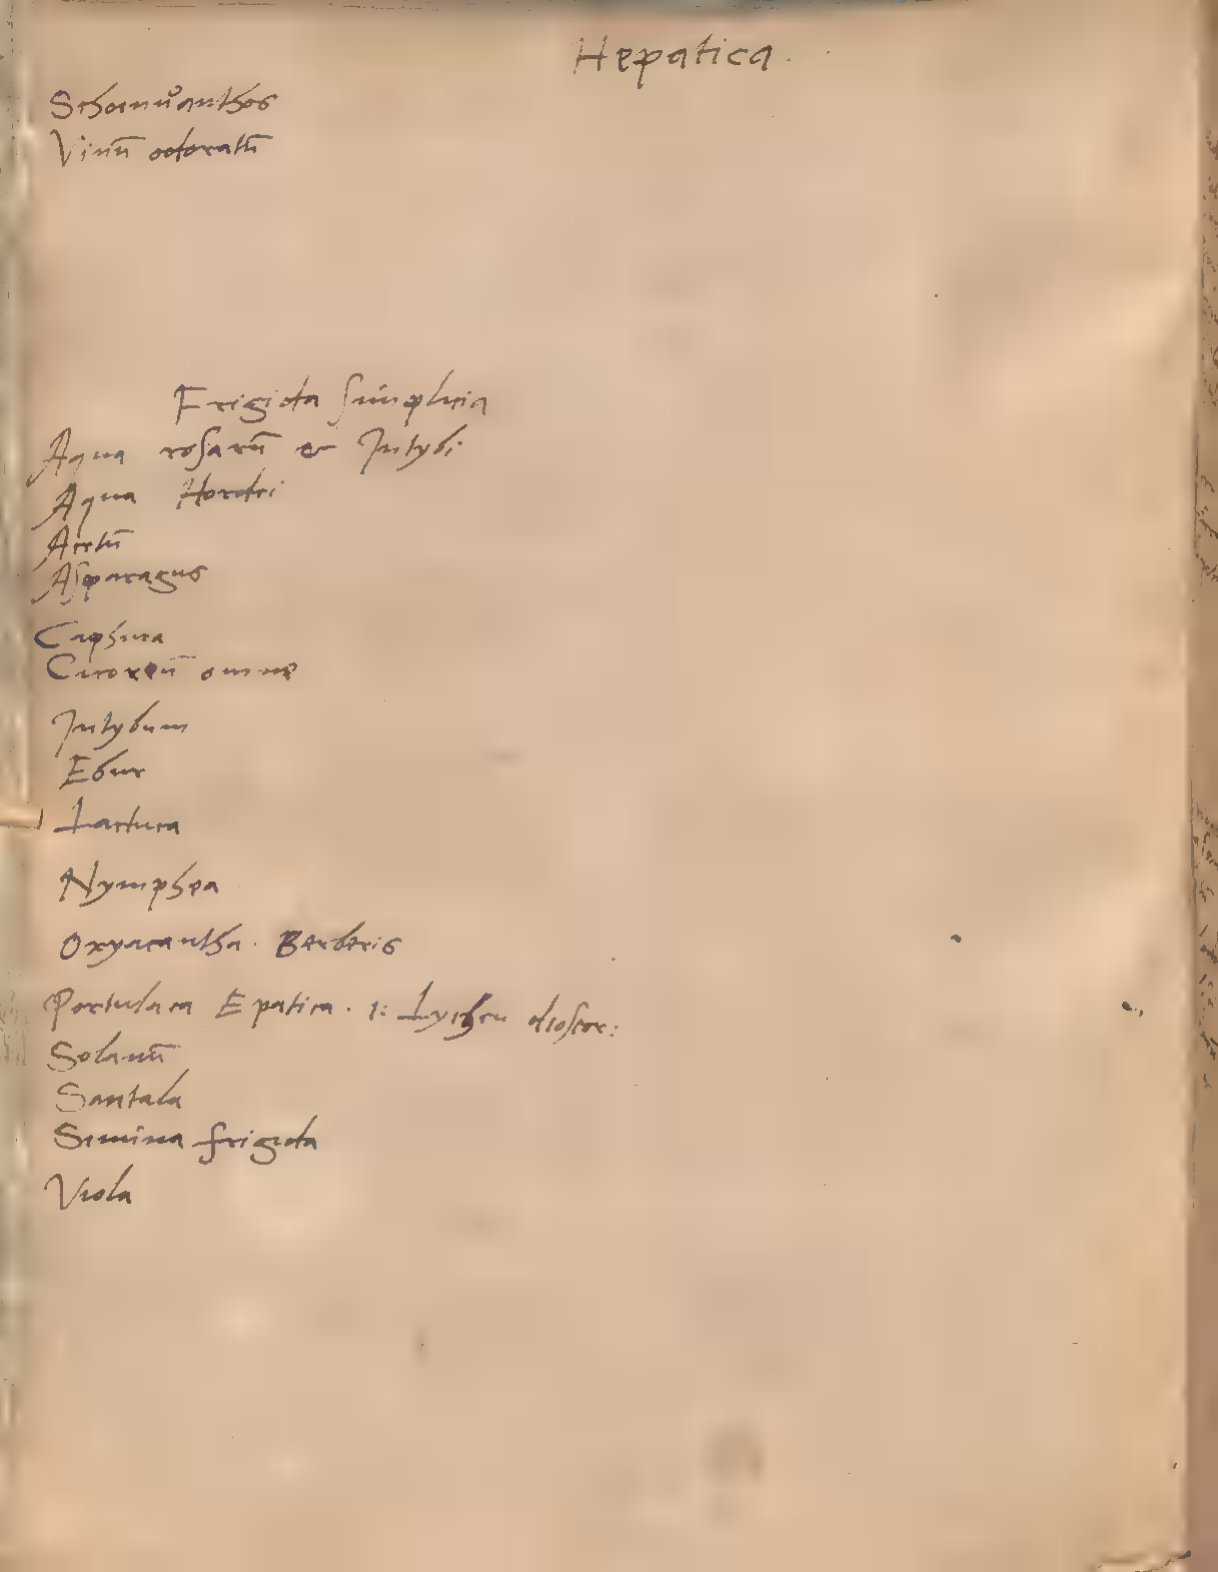 Hepatica.
Schoenuanthos
Vinū odoratū
Frigida simplicia
Aqua rosarū & Intybi
Aqua Hordei
Acetū
Asparagus
Caphura
omne
Intybum
Ebur
Lactuca
Nymphea
Oxyacantha. Berberis
Portulaca Epatica. i: Lychen diosco:
Solanū
Santala
Semina frigida
Viola